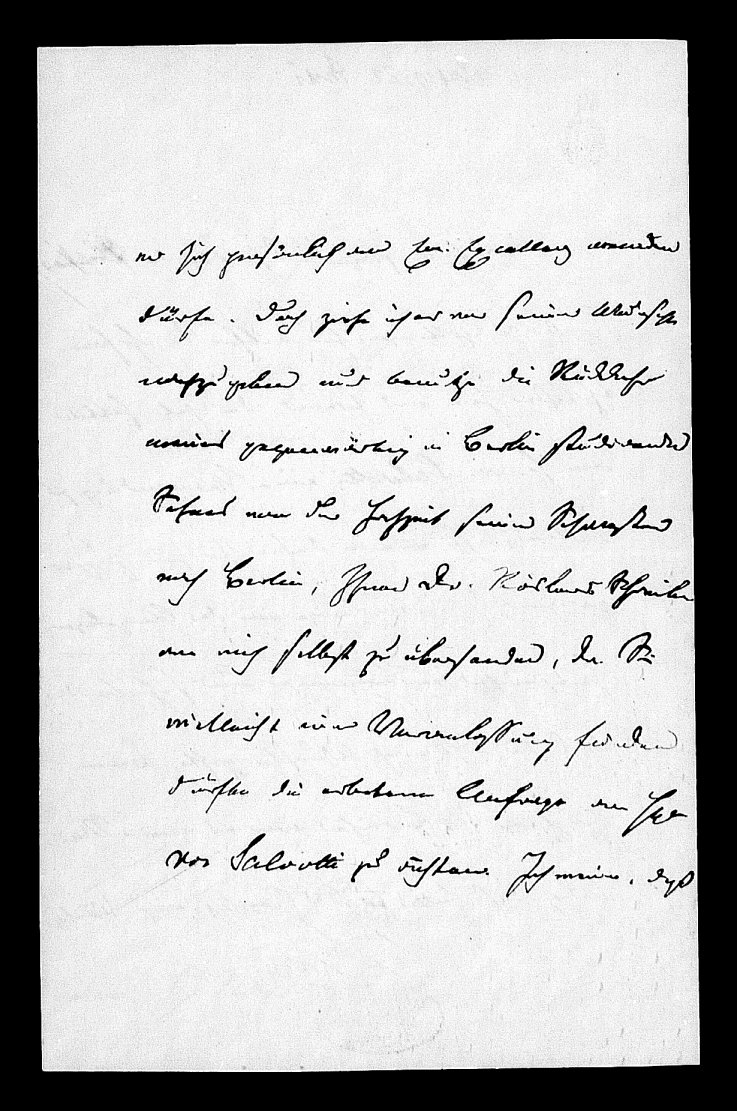 er sich persönlich an Ew. Excellenz wenden
dürfe. Doch ziehe ich es vor seinem Wunsche
nachzugeben und benutze die Rückkehr
meines gegenwärtig in Berlin studirenden
Sohnes von der Hochzeit seiner Schwester
nach Berlin, Ihnen Dr. Röslers Schreiben
an mich selbst zu übersenden, da Sie
vielleicht eine Veranlassung finden
dürften die erbetene Anfrage an Herrn
von Salvotti zu richten. Ich meine, daß